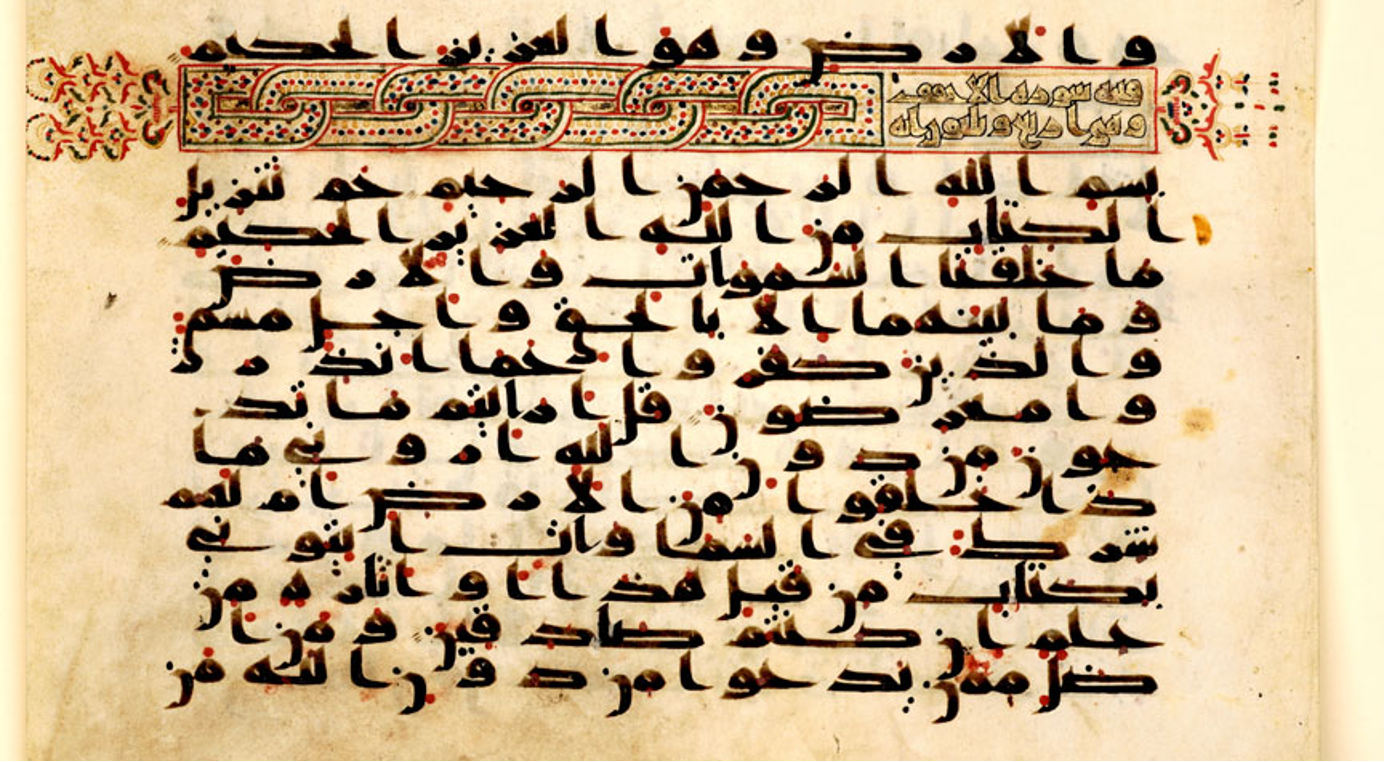 والارض وهو العزيز الحكيم
سوره الاحقف
وهي اربع وثلثون ايه
بسم الله الرحمن الرحيم حم تنزيل
الكتاب من الله العزيز الحكيم
ما خلقنا السموات والارض
وما بينهما الا بالحق واجل مسمى
والذين كفروا عما انذر
وا معرضون قل ارايتم ما تد
عون من دون الله اروني ما
ذا خلقوا من الارض ام لهم
شرك في السموات ايتوني
بكتاب من قبل هذا او اثارة من
علم ان كنتم صادقين ومن ا
ضل ممن يدعوا من دون الله من